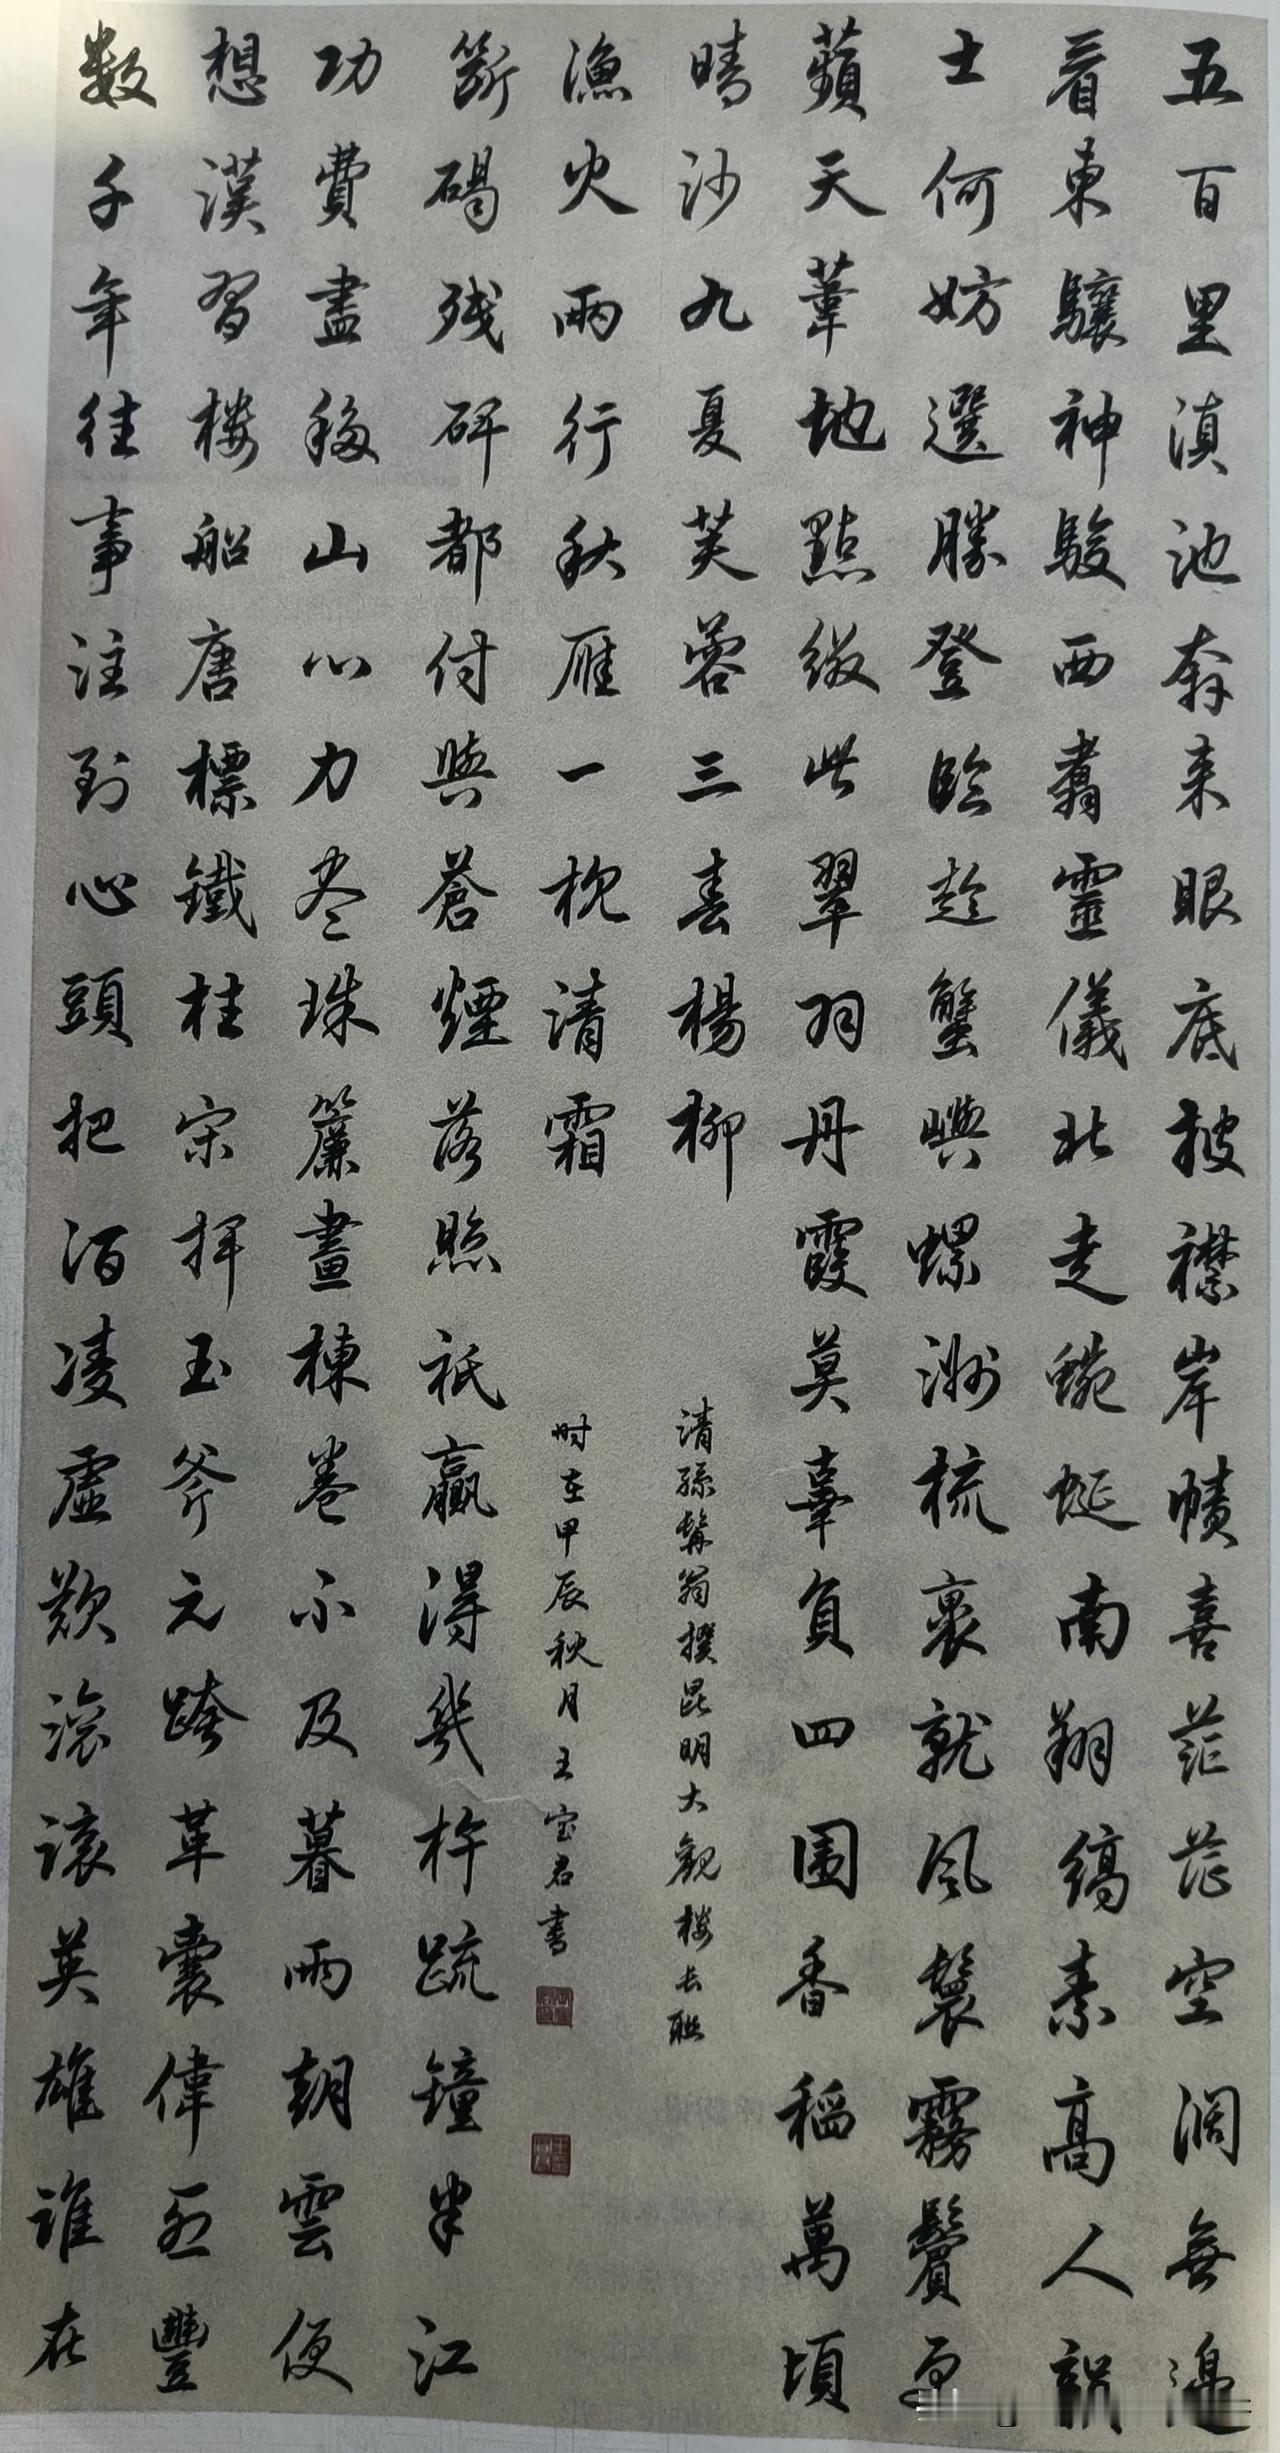 五百里滇池奔来眼底披襟岸幘喜茫茫空阔無邊
看東驤神駿西翥靈儀北走蜿蜒南翔縞素高人韻
士何妨選勝登臨趁蟹嶼螺洲梳裹就風鬟霧鬢更
蘋天葦地點綴些翠羽丹霞莫辜負四围香稻萬頃
晴沙九夏芙蓉三春楊柳
清孫髯翁撰昆明大觀楼長联
数千年往事注到心頭把酒凌虚歎滚滚英雄誰在
想漢習楼船唐標鐵柱宋揮玉斧元跨革囊偉烈豐
功費盡移山心力尽珠簾畫棟卷不及暮雨朝雲便
断碣残碑都付與蒼煙落照衹贏得幾杵疏鐘半江
漁火兩行秋雁一枕清霜
时在甲辰秋月王宝君書